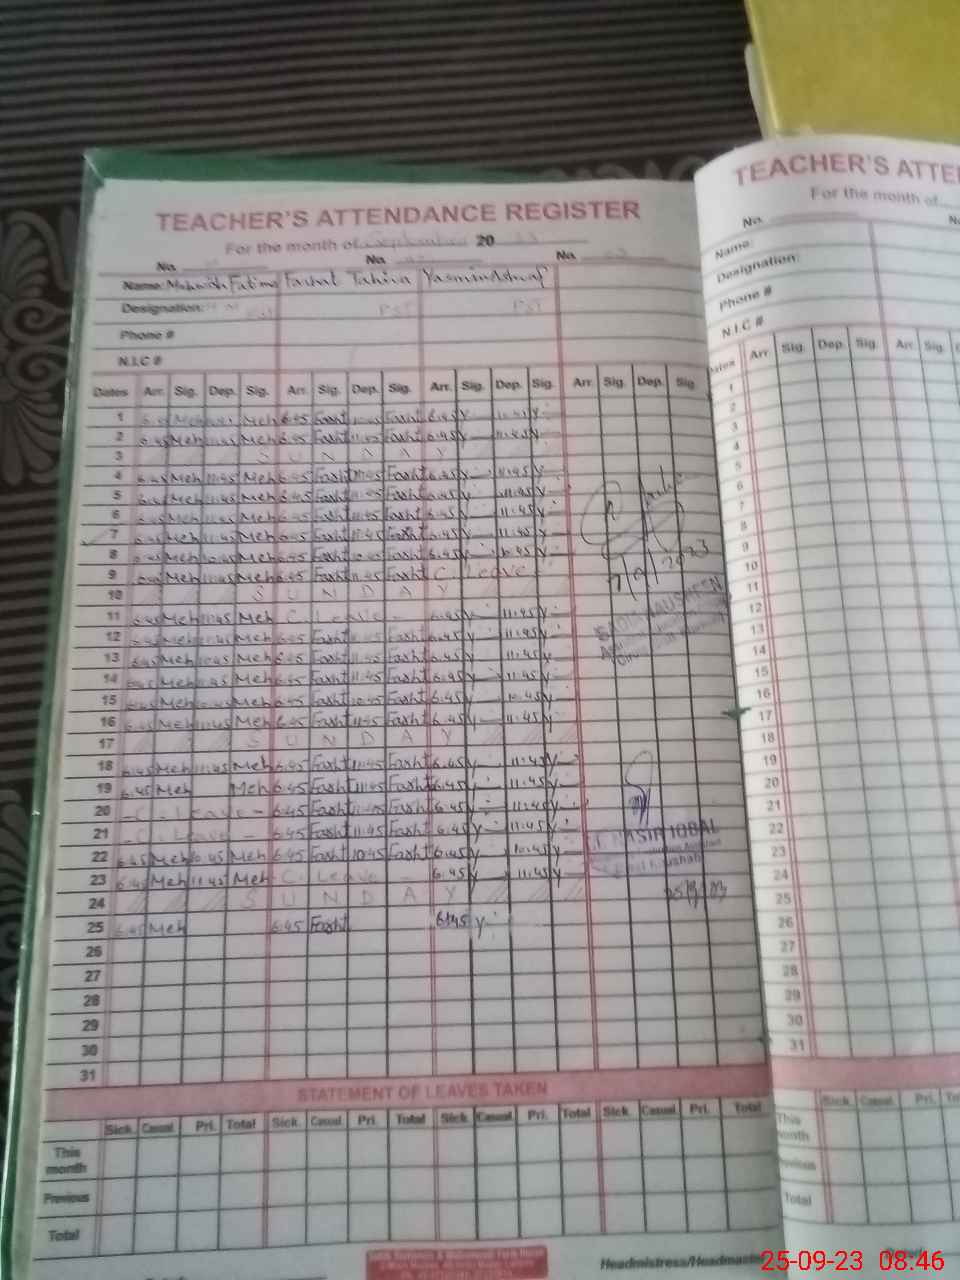 TEACHER'S ATTENDANCE REGISTER
For the month of September 20 23
No. No. No.
Name: Mehwish Fatima Farhat Tahira Yasmin Ashraf
Designation: PST PST
Phone #
N.I.C #
Dates Arr. Sig. Dep. Sig. Arr. Sig. Dep. Sig. Arr. Sig. Dep. Sig. Arr. Sig. Dep. Sig.
1 6.45 Meh Meh 6.45 Farht Farht 6.45 y 11.45 y
2 6.45 Meh 11.45 Meh 6.45 Farht 11.45 Farht 6.45 y 11.45 y
3 S U N D A Y
4 6.45 Meh 11.45 Meh 6.45 Farht 11.45 Farht 6.45 y 11.45 y
5 6.45 Meh 11.45 Meh 6.45 Farht 11.45 Farht 6.45 y 11.45 y
6 6.45 Meh 11.45 Meh 6.45 Farht 11.45 Farht 6.45 y 11.45 y
7 6.45 Meh 11.45 Meh 6.45 Farht 11.45 Farht 6.45 y 11.45 y
8 6.45 Meh 10.45 Meh 6.45 Farht 10.45 Farht 6.45 y 10.45 y
9 6.45 Meh 11.45 Meh 6.45 Farht 11.45 Farht C. Leave
10 S U N D A Y
11 6.45 Meh 11.45 Meh C. Leave - 6.45 y 11.45 y
12 6.45 Meh 11.45 Meh 6.45 Farht 11.45 Farht 6.45 y 11.45 y
13 6.45 Meh 11.45 Meh 6.45 Farht 11.45 Farht 6.45 y 11.45 y
14 6.45 Meh 11.45 Meh 6.45 Farht 11.45 Farht 6.45 y 11.45 y
15 6.45 Meh 10.45 Meh 6.45 Farht 10.45 Farht 6.45 y 10.45 y
16 6.45 Meh 11.45 Meh 6.45 Farht 11.45 Farht 6.45 y 11.45 y
17 S U N D A Y
18 6.45 Meh 11.45 Meh 6.45 Farht 11.45 Farht 6.45 y 11.45 y
19 6.45 Meh Meh 6.45 Farht 11.45 Farht 6.45 y 11.45 y
20 - C. Leave - 6.45 Farht 11.45 Farht 6.45 y 11.45 y
21 - C. Leave - 6.45 Farht 11.45 Farht 6.45 y 11.45 y
22 6.45 Meh 10.45 Meh 6.45 Farht 10.45 Farht 6.45 y 10.45 y
23 6.45 Meh 11.45 Meh C. Leave - 6.45 y 11.45 y
24 S U N D A Y
25 6.45 Meh 6.45 Farht 6.45 y
26
27
28
29
30
31
7/9/2023
NASIR IQBAL
25/9/23
STATEMENT OF LEAVES TAKEN
Sick. Casual. Pri. Total Sick. Casual. Pri. Total Sick. Casual. Pri. Total Sick. Casual. Pri. Total
This month
Previous
Total
Headmistress/Headmaster
TEACHER'S ATTE
For the month of
No.
Name:
Designation:
Phone #
N.I.C #
Dates Arr. Sig. Dep. Sig. Arr. Sig.
1
2
3
4
5
6
7
8
9
10
11
12
13
14
15
16
17
18
19
20
21
22
23
24
25
26
27
28
29
30
31
Sick. Casual. Pri.
This month
Previous
Total
25-09-23 08:46